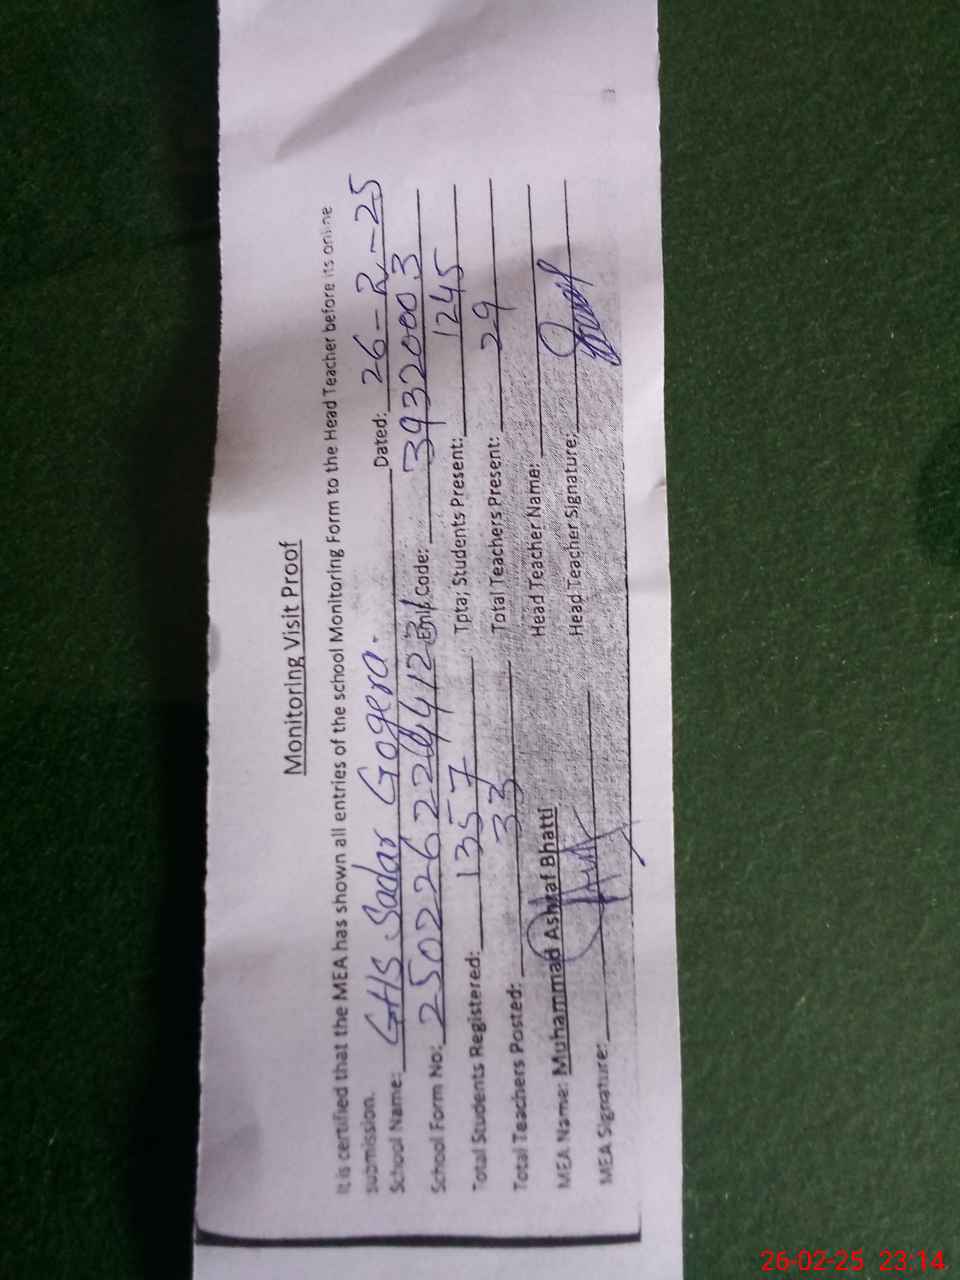 Monitoring Visit Proof
It is certified that the MEA has shown all entries of the school Monitoring Form to the Head Teacher before its online
submission.
School Name: GHS Sadar Gogera. Dated: 26-2-25
School Form No: Emis Code: 39320003
Total Students Registered: 1357 Tpta; Students Present: 1245
Total Teachers Posted: 33 Total Teachers Present: 29
MEA Name: Muhammad Ashraf Bhatti Head Teacher Name:
MEA Signature: Head Teacher Signature:
26-02-25 23:14